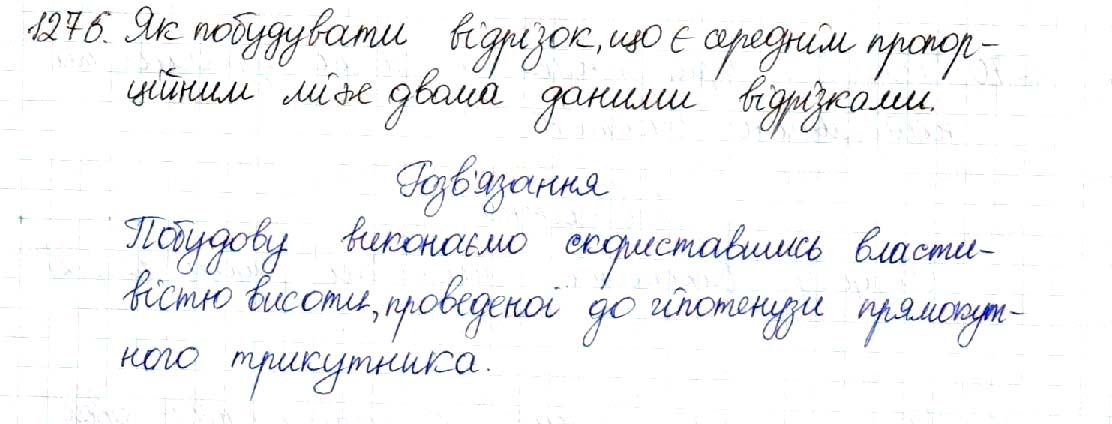 1276. Як побудувати відрізок, що є середнім пропор-
ційним між двома даними відрізками.
Розв'язання
Побудову виконаємо скориставшись власти-
вістю висоти, проведеної до гіпотенузи прямокут-
ного трикутника.